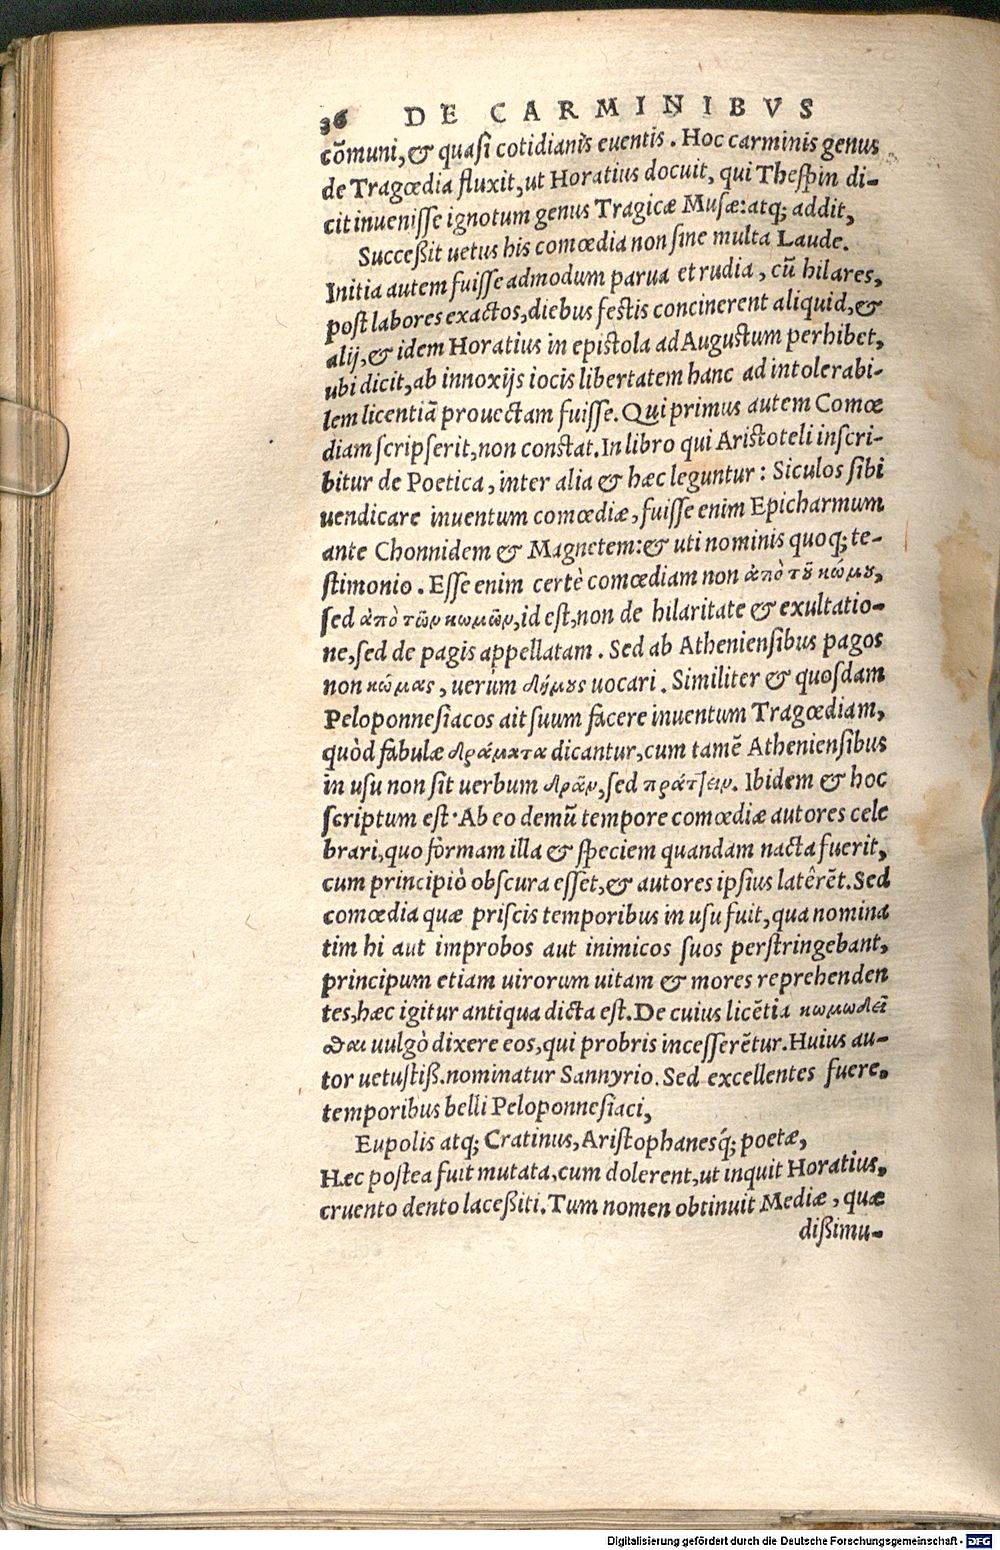 36 DE CARMINIBVS
cōmuni, & quasi cotidianis euentis. Hoc carminis genus
de Tragœdia fluxit, ut Horatius docuit, qui Thespin di-
cit inuenisse ignotum genus Tragicæ Musæ: atq; addit,
Succeßit uetus his comœdia non sine multa Laude.
Initia autem fuisse admodum parua et rudia, cū hilares,
post labores exactos, diebus festis concinerent aliquid, &
alij, & idem Horatius in epistola ad Augustum perhibet,
ubi dicit, ab innoxijs iocis libertatem hanc ad intolerabi-
lem licentiā prouectam fuisse. Qui primus autem Comœ
diam scripserit, non constat. In libro qui Aristoteli inscri-
bitur de Poetica, inter alia & hæc leguntur: Siculos sibi
uendicare inuentum comœdiæ, fuisse enim Epicharmum
ante Chonnidem & Magnetem: & uti nominis quoq; te-
stimonio. Esse enim certè comœdiam non ἀπὸ τȣ͂ κώμȣ,
sed ἀπὸ τῶν κωμῶν, id est, non de hilaritate & exultatio-
ne, sed de pagis appellatam. Sed ab Atheniensibus pagos
non κώμας, uerùm δήμȣς uocari. Similiter & quosdam
Peloponnesiacos ait suum facere inuentum Tragœdiam,
quòd fabulæ δράματα dicantur, cum tamē Atheniensibus
in usu non sit uerbum δρᾶν, sed πράτ]ειν. Ibidem & hoc
scriptum est. Ab eo demū tempore comœdiæ autores cele
brari, quo formam illa & speciem quandam nacta fuerit,
cum principiò obscura esset, & autores ipsius latêrēt. Sed
comœdia quæ priscis temporibus in usu fuit, qua nomina
tim hi aut improbos aut inimicos suos perstringebant,
principum etiam uirorum uitam & mores reprehenden
tes, hæc igitur antiqua dicta est. De cuius licētia κωμωδεῖ
ϑαι uulgò dixere eos, qui probris incesserētur. Huius au-
tor uetustiß. nominatur Sannyrio. Sed excellentes fuere,
temporibus belli Peloponnesiaci,
Eupolis atq; Cratinus, Aristophanesq́; poetæ,
Hæc postea fuit mutata, cum dolerent, ut inquit Horatius,
cruento dento laceßiti. Tum nomen obtinuit Mediæ, quæ
dißimu-
Digitalisierung gefördert durch die Deutsche Forschungsgemeinschaft - DFG